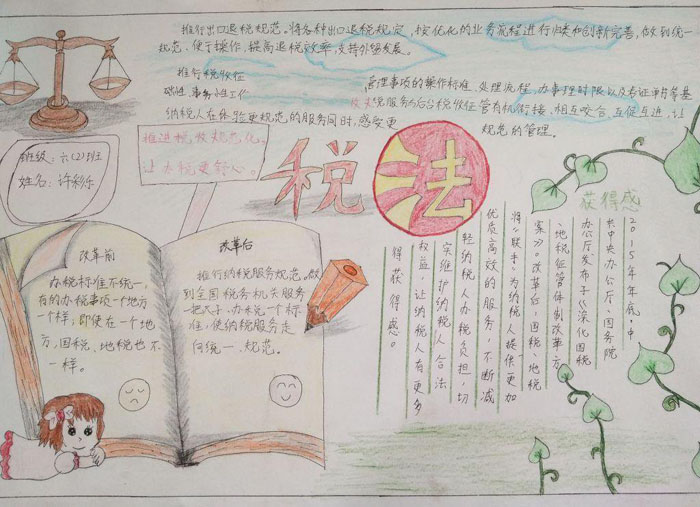 推行出口退税规范。将各种出口退税规定,按优化的业务流程进行归类和创新完善,做到统一
规范、便于操作,提高退税效率,支持外贸发展。
推行税收征
管理事项的操作标准、处理流程,办事理时限以及表证单书等基
础性、事务性工作
税服务后台税收征管有机衔接、相互咬合、互促互进,让
纳税人在体验更规范的服务同时,感受更
规范的管理。
班级:六(2)班
姓名:许彩乐
推进税收规范化。
让办税更舒心。
税法
改革前
办税标准不统一,
有的办税事项一个地方
一个样;即使在一个地
方,国税、地税也不
一样。
改革后
推行纳税服务规范,做
到全国税务机关服务
一把尺子、办税一个标
准,使纳税服务走
向统一、规范。
获得感
2015年年底,中
共中央办公厅、国务院
办公厅发布了《深化国税
、地税征管体制改革方
案》。改革后,国税、地税
将“联手”为纳税人提供更加
优质高效的服务,不断减
轻纳税人办税负担,切
实维护纳税人合法
权益,让纳税人有更多
得获得感。